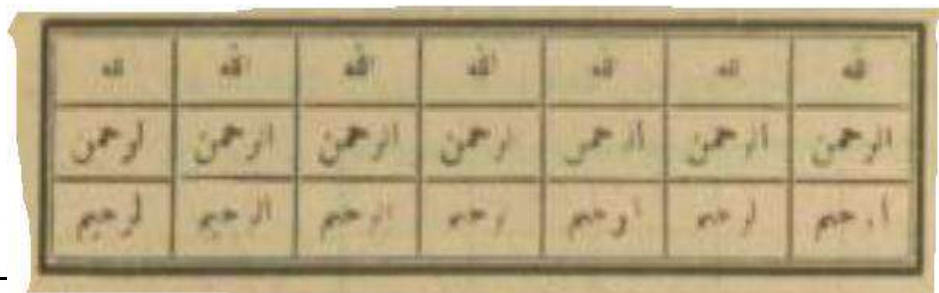 الله الله الله الله الله الله الله
الرحمن الرحمن الرحمن الرحمن الرحمن الرحمن الرحمن
الرحيم الرحيم الرحيم الرحيم الرحيم الرحيم الرحيم